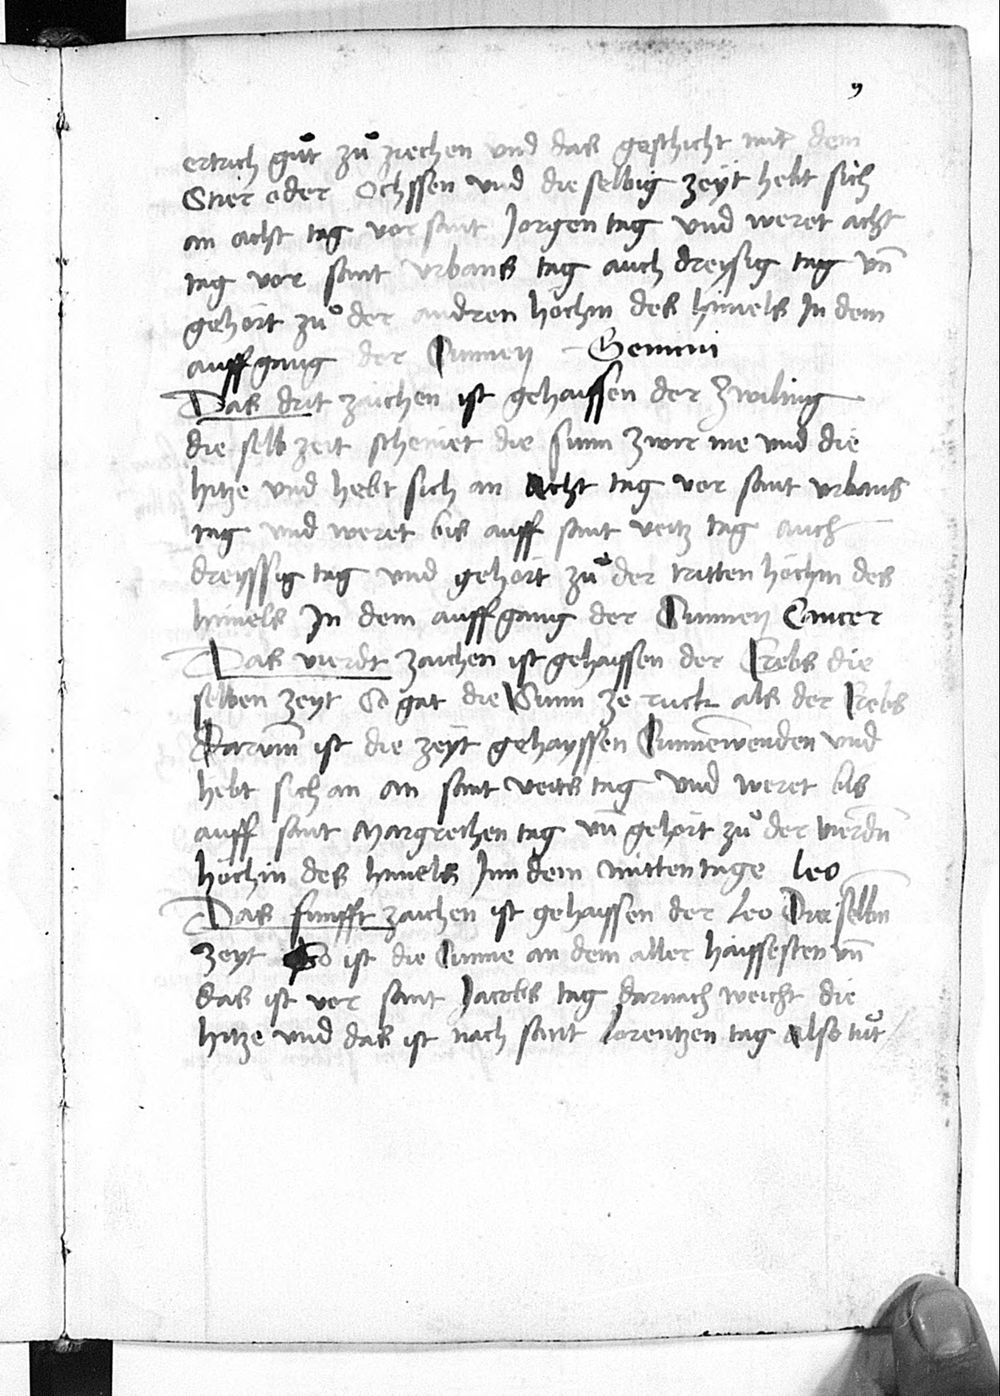 9
ertrich gůt zů ziechen und das geschicht mit dem
Stier oder Ochssen und die selbig zeÿt hebt sich
an acht tag vor sant Jorgen tag und weret acht
tag vor sant urbans tag auch dreysig tag vn̄
gehört zů der andren höchin des himels In dem
auffgang der Sunnen Gemini
Das drit zaichen ist gehaissen der Zwiling
die selb zeit scheinet die sunn zwir me und die
hitze und hebt sich an Acht tag vor sant urbans
tag und weret bis auff sant veitz tag auch
dreyssig tag und gehört zů der tritten höchin des
himels In dem auffgang der Sunnen Cancer
Das vierdt zaichen ist gehaissen der Krebs die
selben zeyt So gat die Sunn ze ruck als der Krebs
Darum̄ ist die zeÿt gehayssen Sunnēwenden und
hebt sich an an sant veits tag und weret bis
auff sant Margrethen tag vn̄ gehört zů der vierdn̄
höchin des himels Inn dem mittentage Leo
Das funfft zaichen ist gehaissen der Leo Die selbn̄
zeyt So ist die Sunne an dem aller haissesten vn̄
das ist vor sant Jacobs tag darnach weicht die
hitze und das ist nach sant Lorentzen tag Also tůt